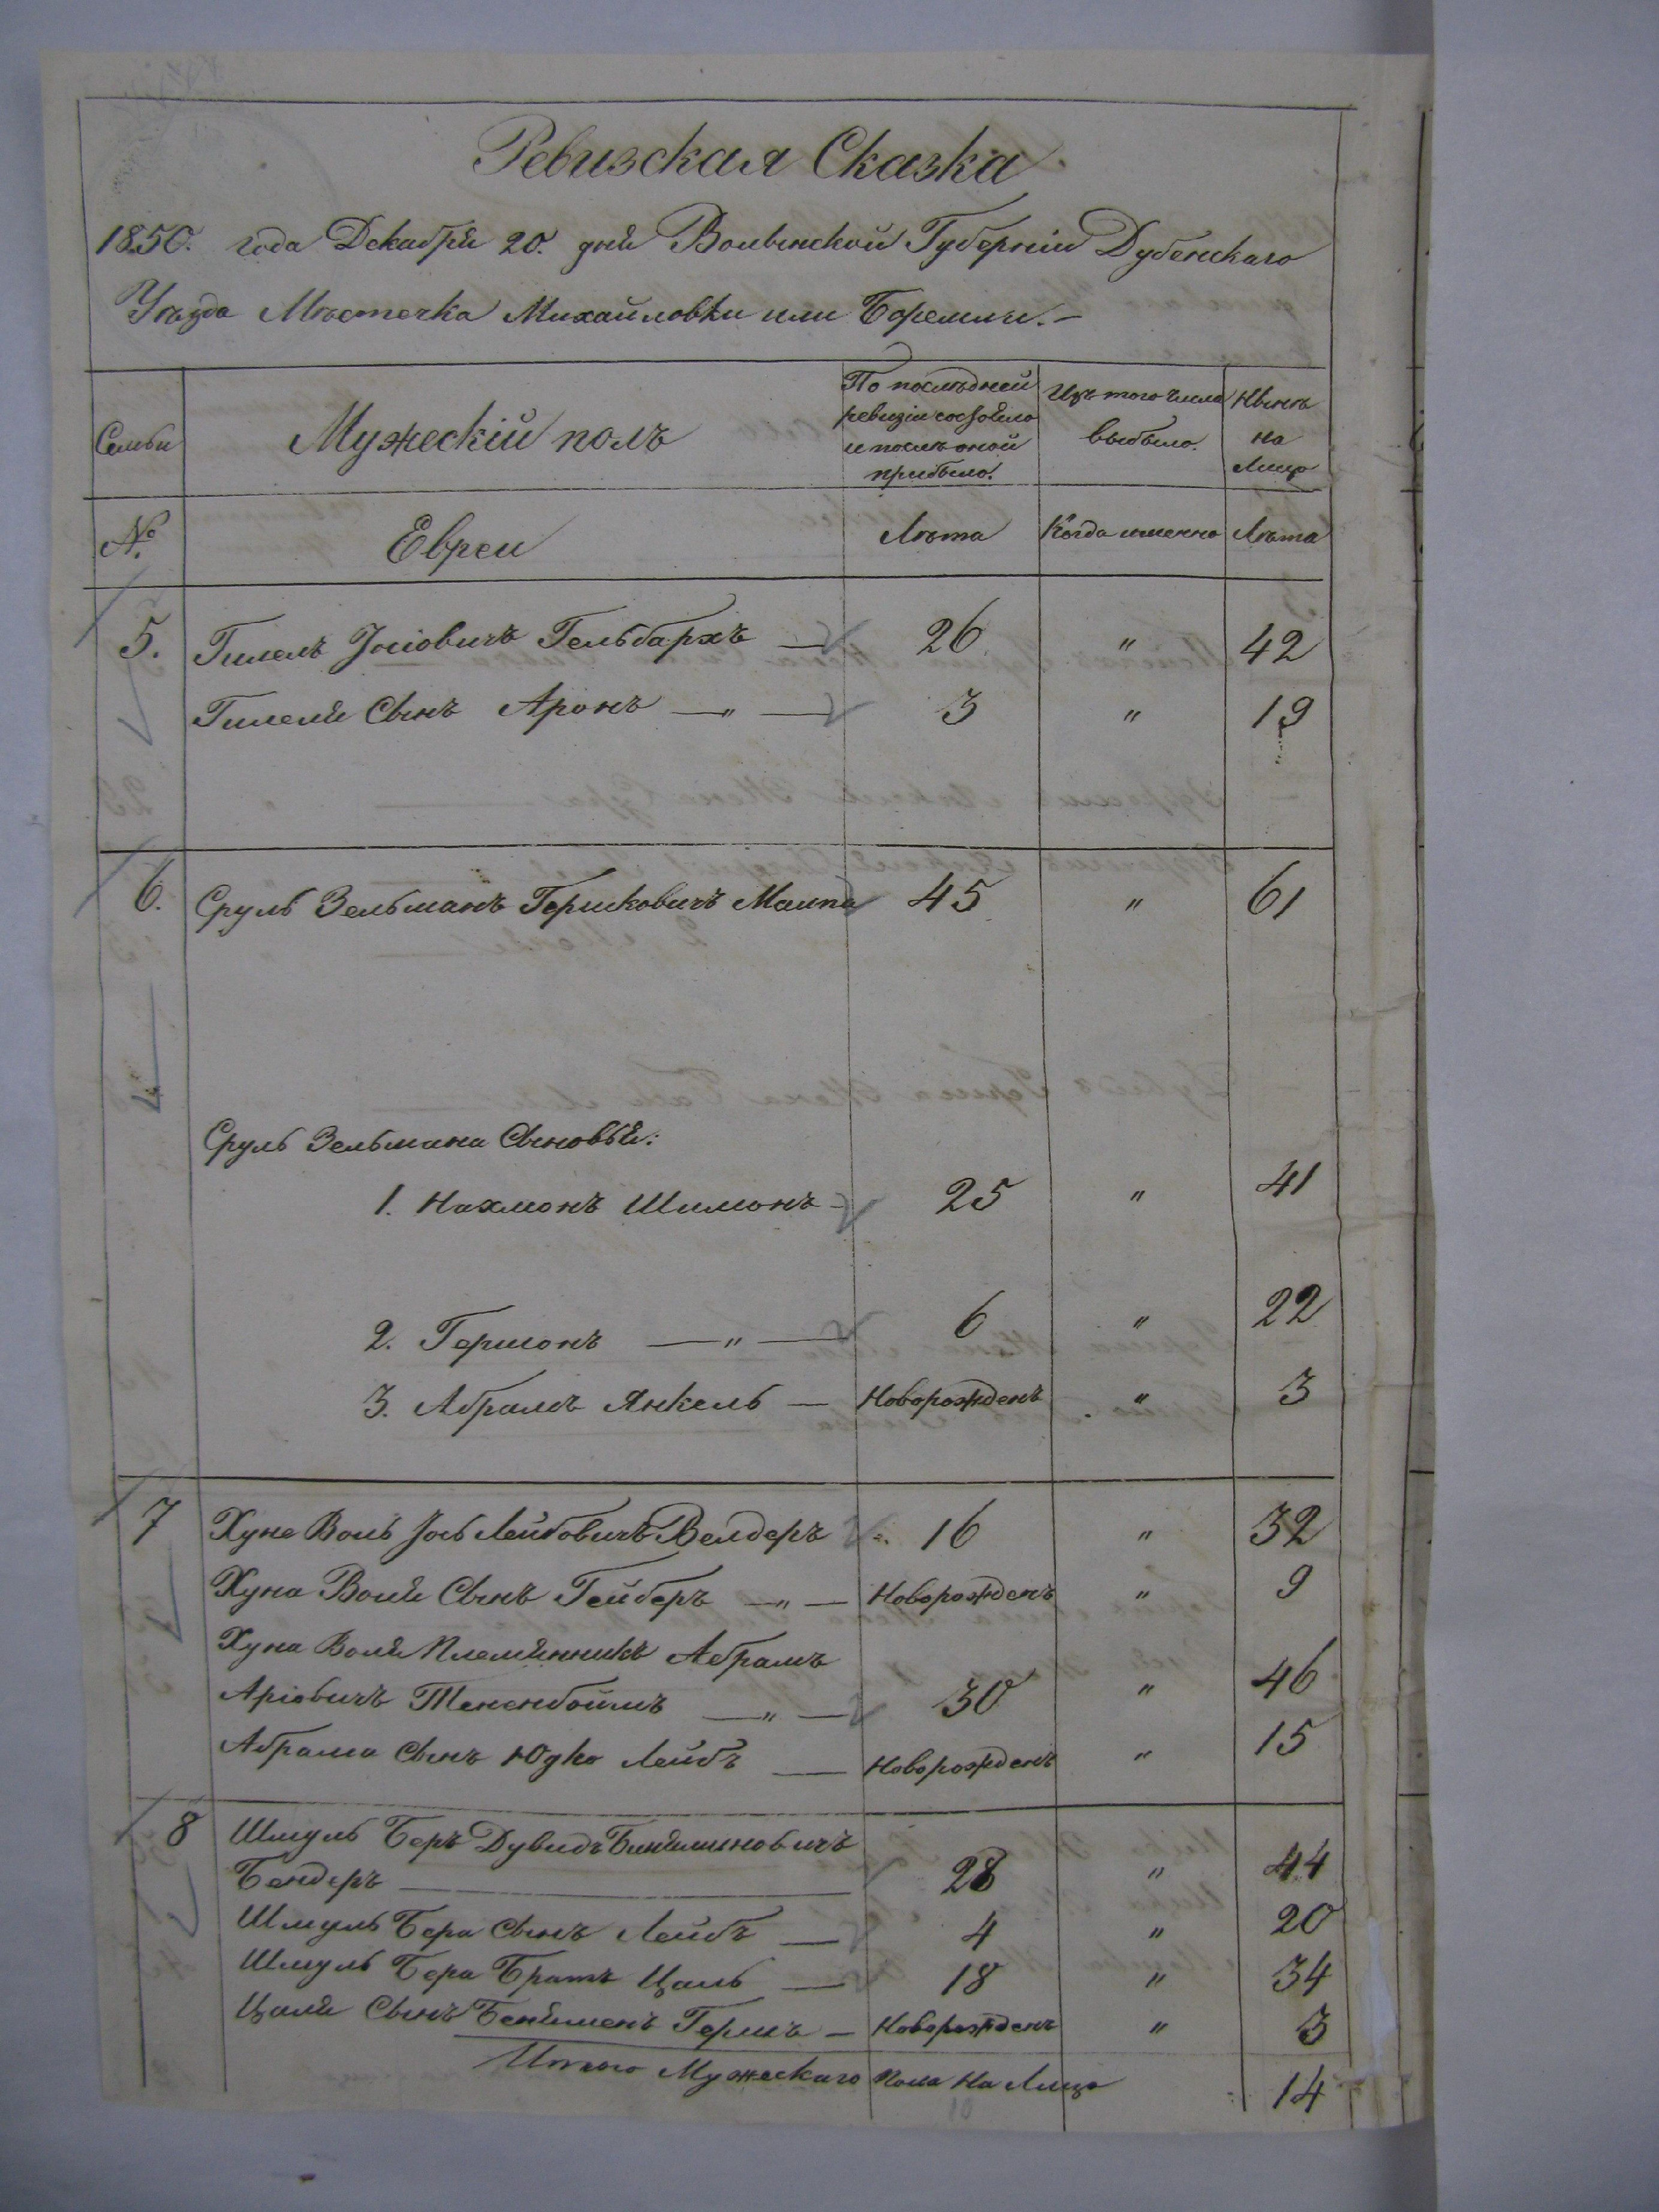 Ревизская Сказка
1850. года Декабря 20. дня Волынской Губерніи Дубенскаго
Уѣзда Мѣстечка Михайловки или Боремли.-
Семьи
Мужескій полъ
По послѣдней
ревизіи состояло
и послѣ оной
прибыло.
Изъ того числа
выбыло.
Нынѣ
на
Лицо
№
Евреи
Лѣта
Когда именно
Лѣта
5. Гилель Іосіовичъ Гельбархъ — 26 " 42
Гилеля Сынъ Аронъ —"— 3 " 19
6. Сруль Зельманъ Гершковичъ 45 " 61
Сруль Зельмана Сыновья:
1. Нахмонъ Шимонъ - 25 " 41
2. Гершонъ —"— 6 " 22
3. Абрамъ Янкель — Новорожденъ " 3
7 Хуне Воль Іось Лейбовичъ Велдеръ 16 " 32
Хуна Воля Сынъ Гейберъ —"— Новорожденъ " 9
Хуна Воля Племянникъ Абрамъ
Аріовичъ Тененбоймъ —"— 30 " 46
Абрама сынъ Юдко Лейбъ — Новорожденъ " 15
8 Шмуль Беръ Дувидъ Бинямоновичъ
Бендеръ — 28 " 44
Шмуль Бера сынъ Лейбъ — 4 " 20
Шмуль Бера Братъ Цаль — 18 " 34
Цаля Сынъ Бенямень Гершъ — Новорожденъ " 3
Итого Мужескаго Пола На Лицо 14
10